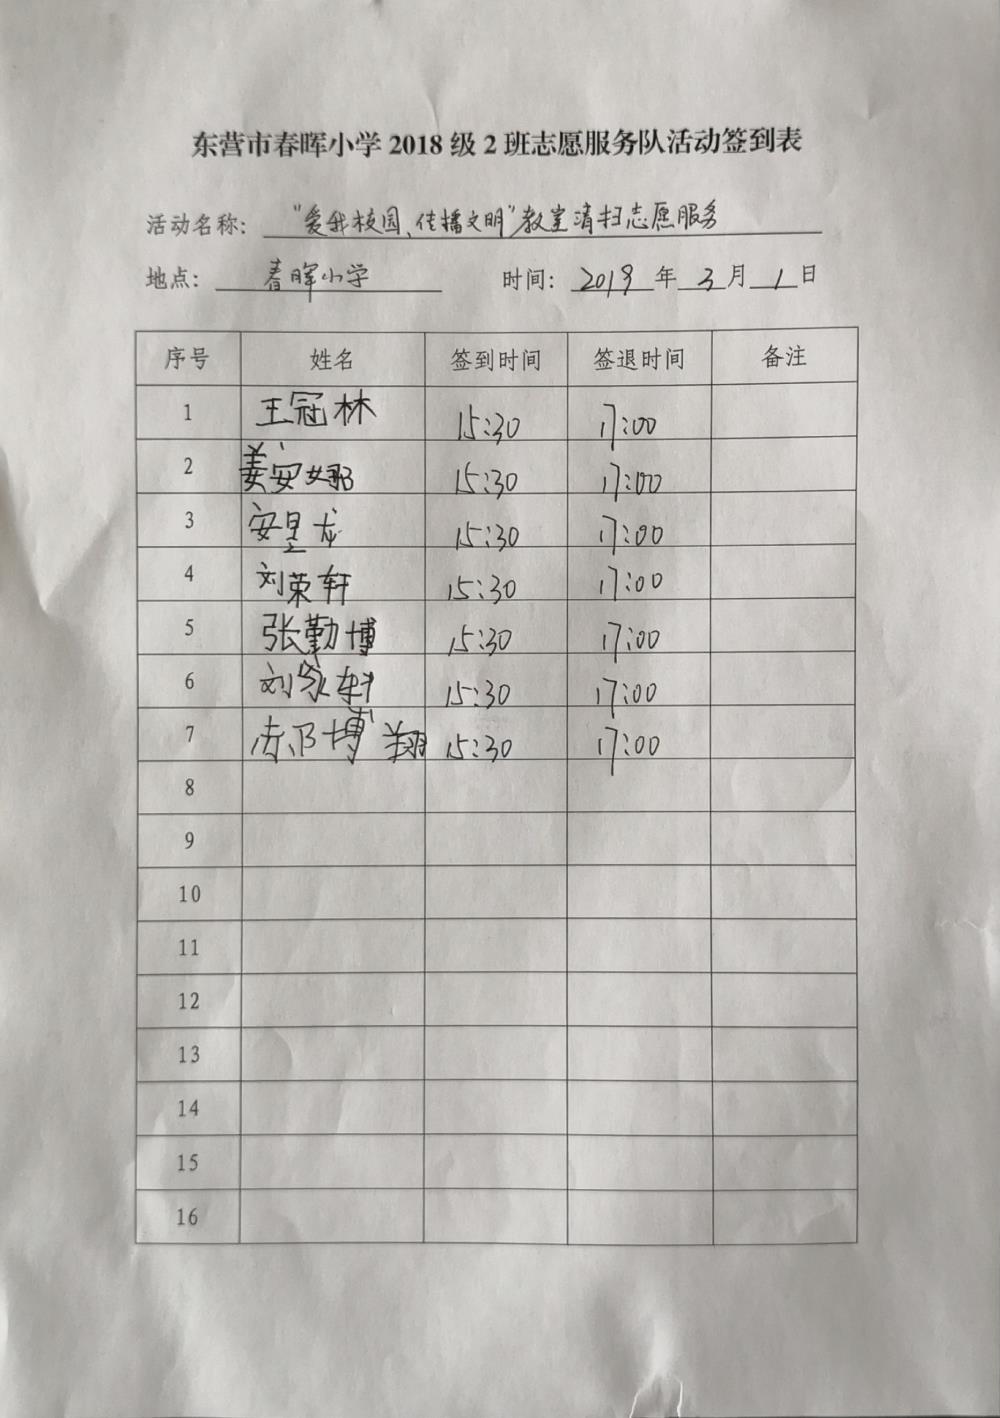 东营市春晖小学 2018 级 2 班志愿服务队活动签到表
活动名称： “爱我校园、传播文明”教室清扫志愿服务
地点： 春晖小学 时间： 2019 年 3 月 1 日
序号 姓名 签到时间 签退时间 备注
1 王冠林 15:30 17:00
2 姜安娜 15:30 17:00
3 安星龙 15:30 17:00
4 刘荣轩 15:30 17:00
5 张勤博 15:30 17:00
6 刘家轩 15:30 17:00
7 博翔 15:30 17:00
8
9
10
11
12
13
14
15
16